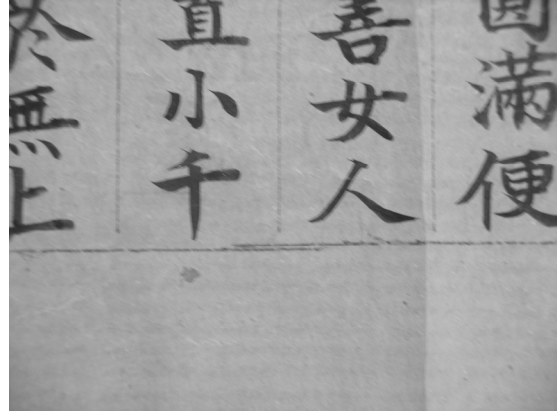 圓滿便
善女人
直小千
於無上